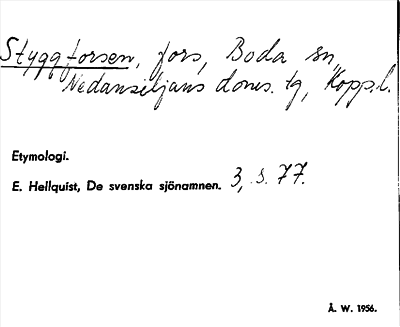 Styggforsen, fors, Boda sn,
Nedansiljans doms. tg, Kopp.l.
Etymologi.
E. Hellquist, De svenska sjönamnen. 3, s. 77.
Å. W. 1956.